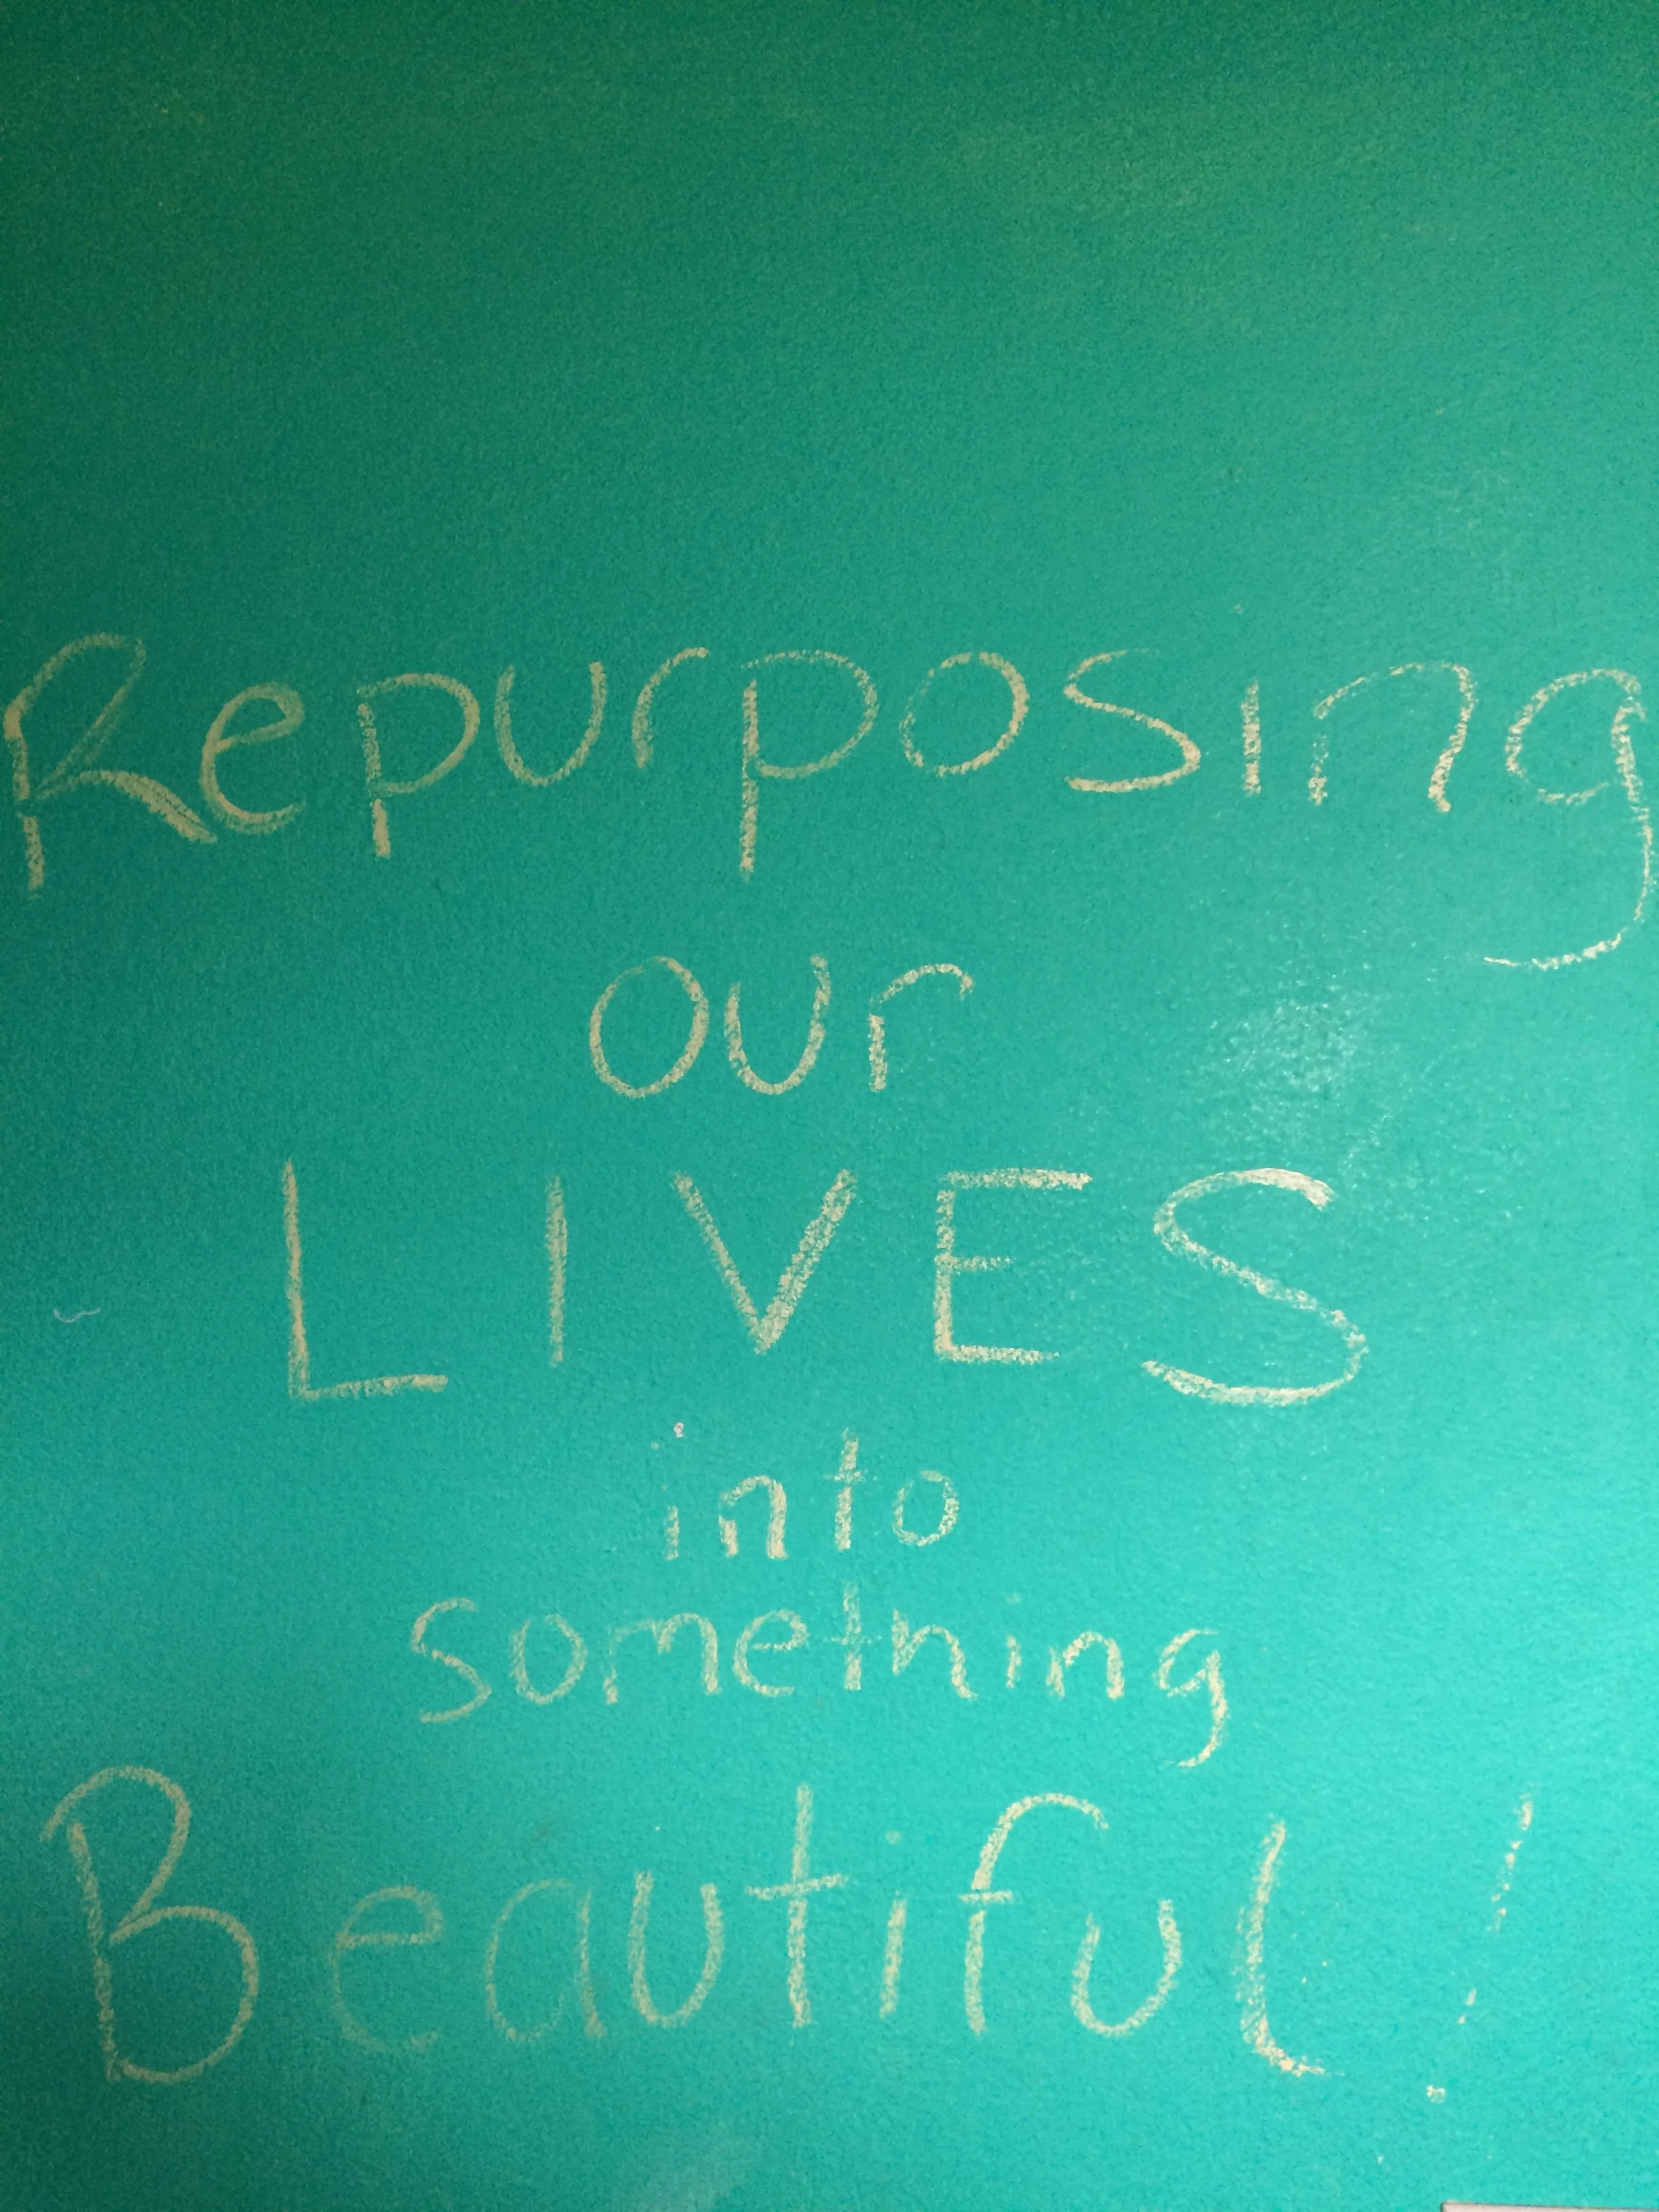 Repurposing
our
LIVES
into
something
Beautiful!